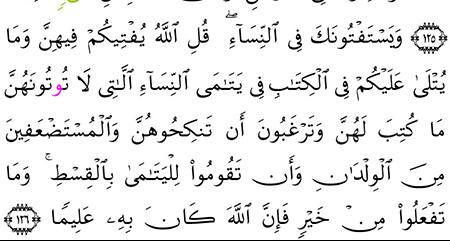 ﴿١٢٥﴾ وَيَسْتَفْتُونَكَ فِى ٱلنِّسَآءِ ۖ قُلِ ٱللَّهُ يُفْتِيكُمْ فِيهِنَّ وَمَا
يُتْلَىٰ عَلَيْكُمْ فِى ٱلْكِتَـٰبِ فِى يَتَـٰمَى ٱلنِّسَآءِ ٱلَّـٰتِى لَا تُوتُونَهُنَّ
مَا كُتِبَ لَهُنَّ وَتَرْغَبُونَ أَن تَنكِحُوهُنَّ وَٱلْمُسْتَضْعَفِينَ
مِنَ ٱلْوِلْدَٰنِ وَأَن تَقُومُوا۟ لِلْيَتَـٰمَىٰ بِٱلْقِسْطِ ۚ وَمَا
تَفْعَلُوا۟ مِنْ خَيْرٍ فَإِنَّ ٱللَّهَ كَانَ بِهِۦ عَلِيمًا ﴿١٢٦﴾